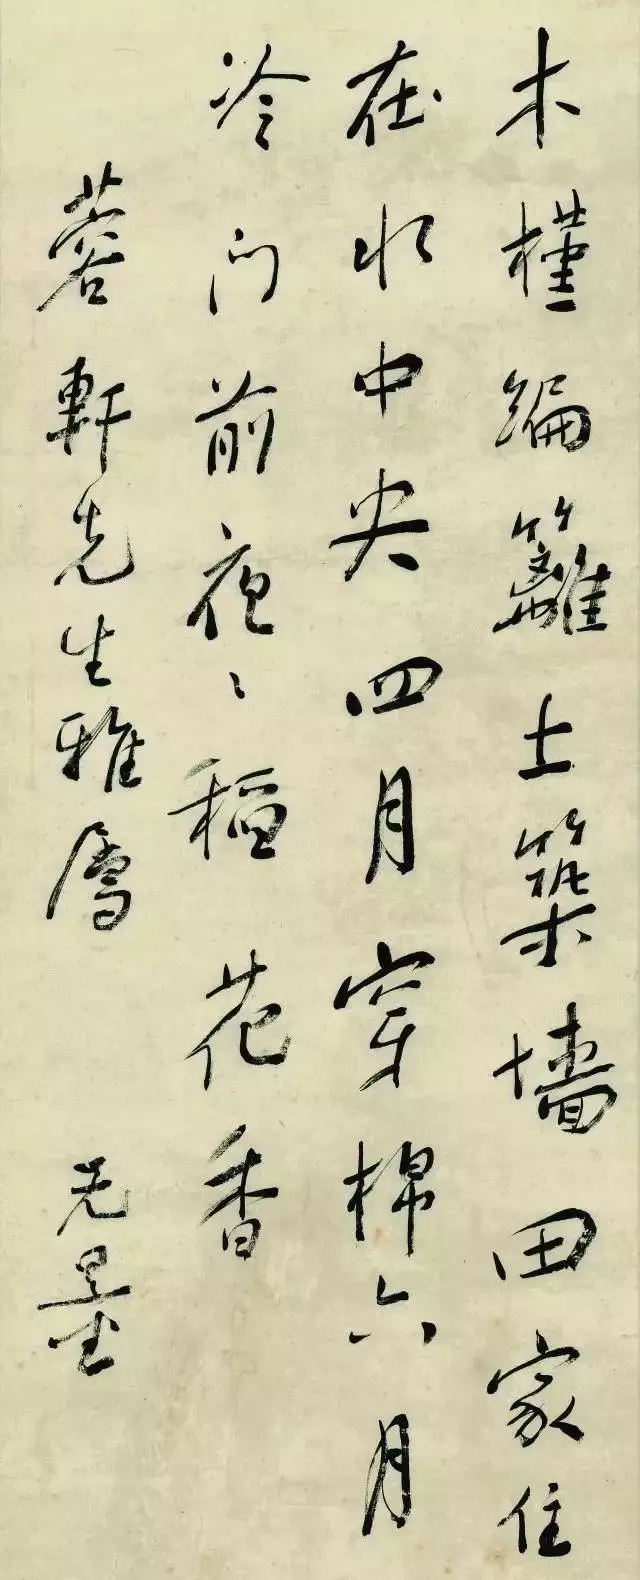 木槿編籬土築墻田家住
在水中央四月穿棉六月
冷门前夜〻稻花香
蓉軒先生雅屬
无量